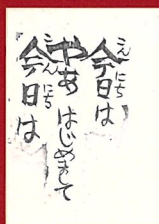 今日は
やあ はじめまして
今日は